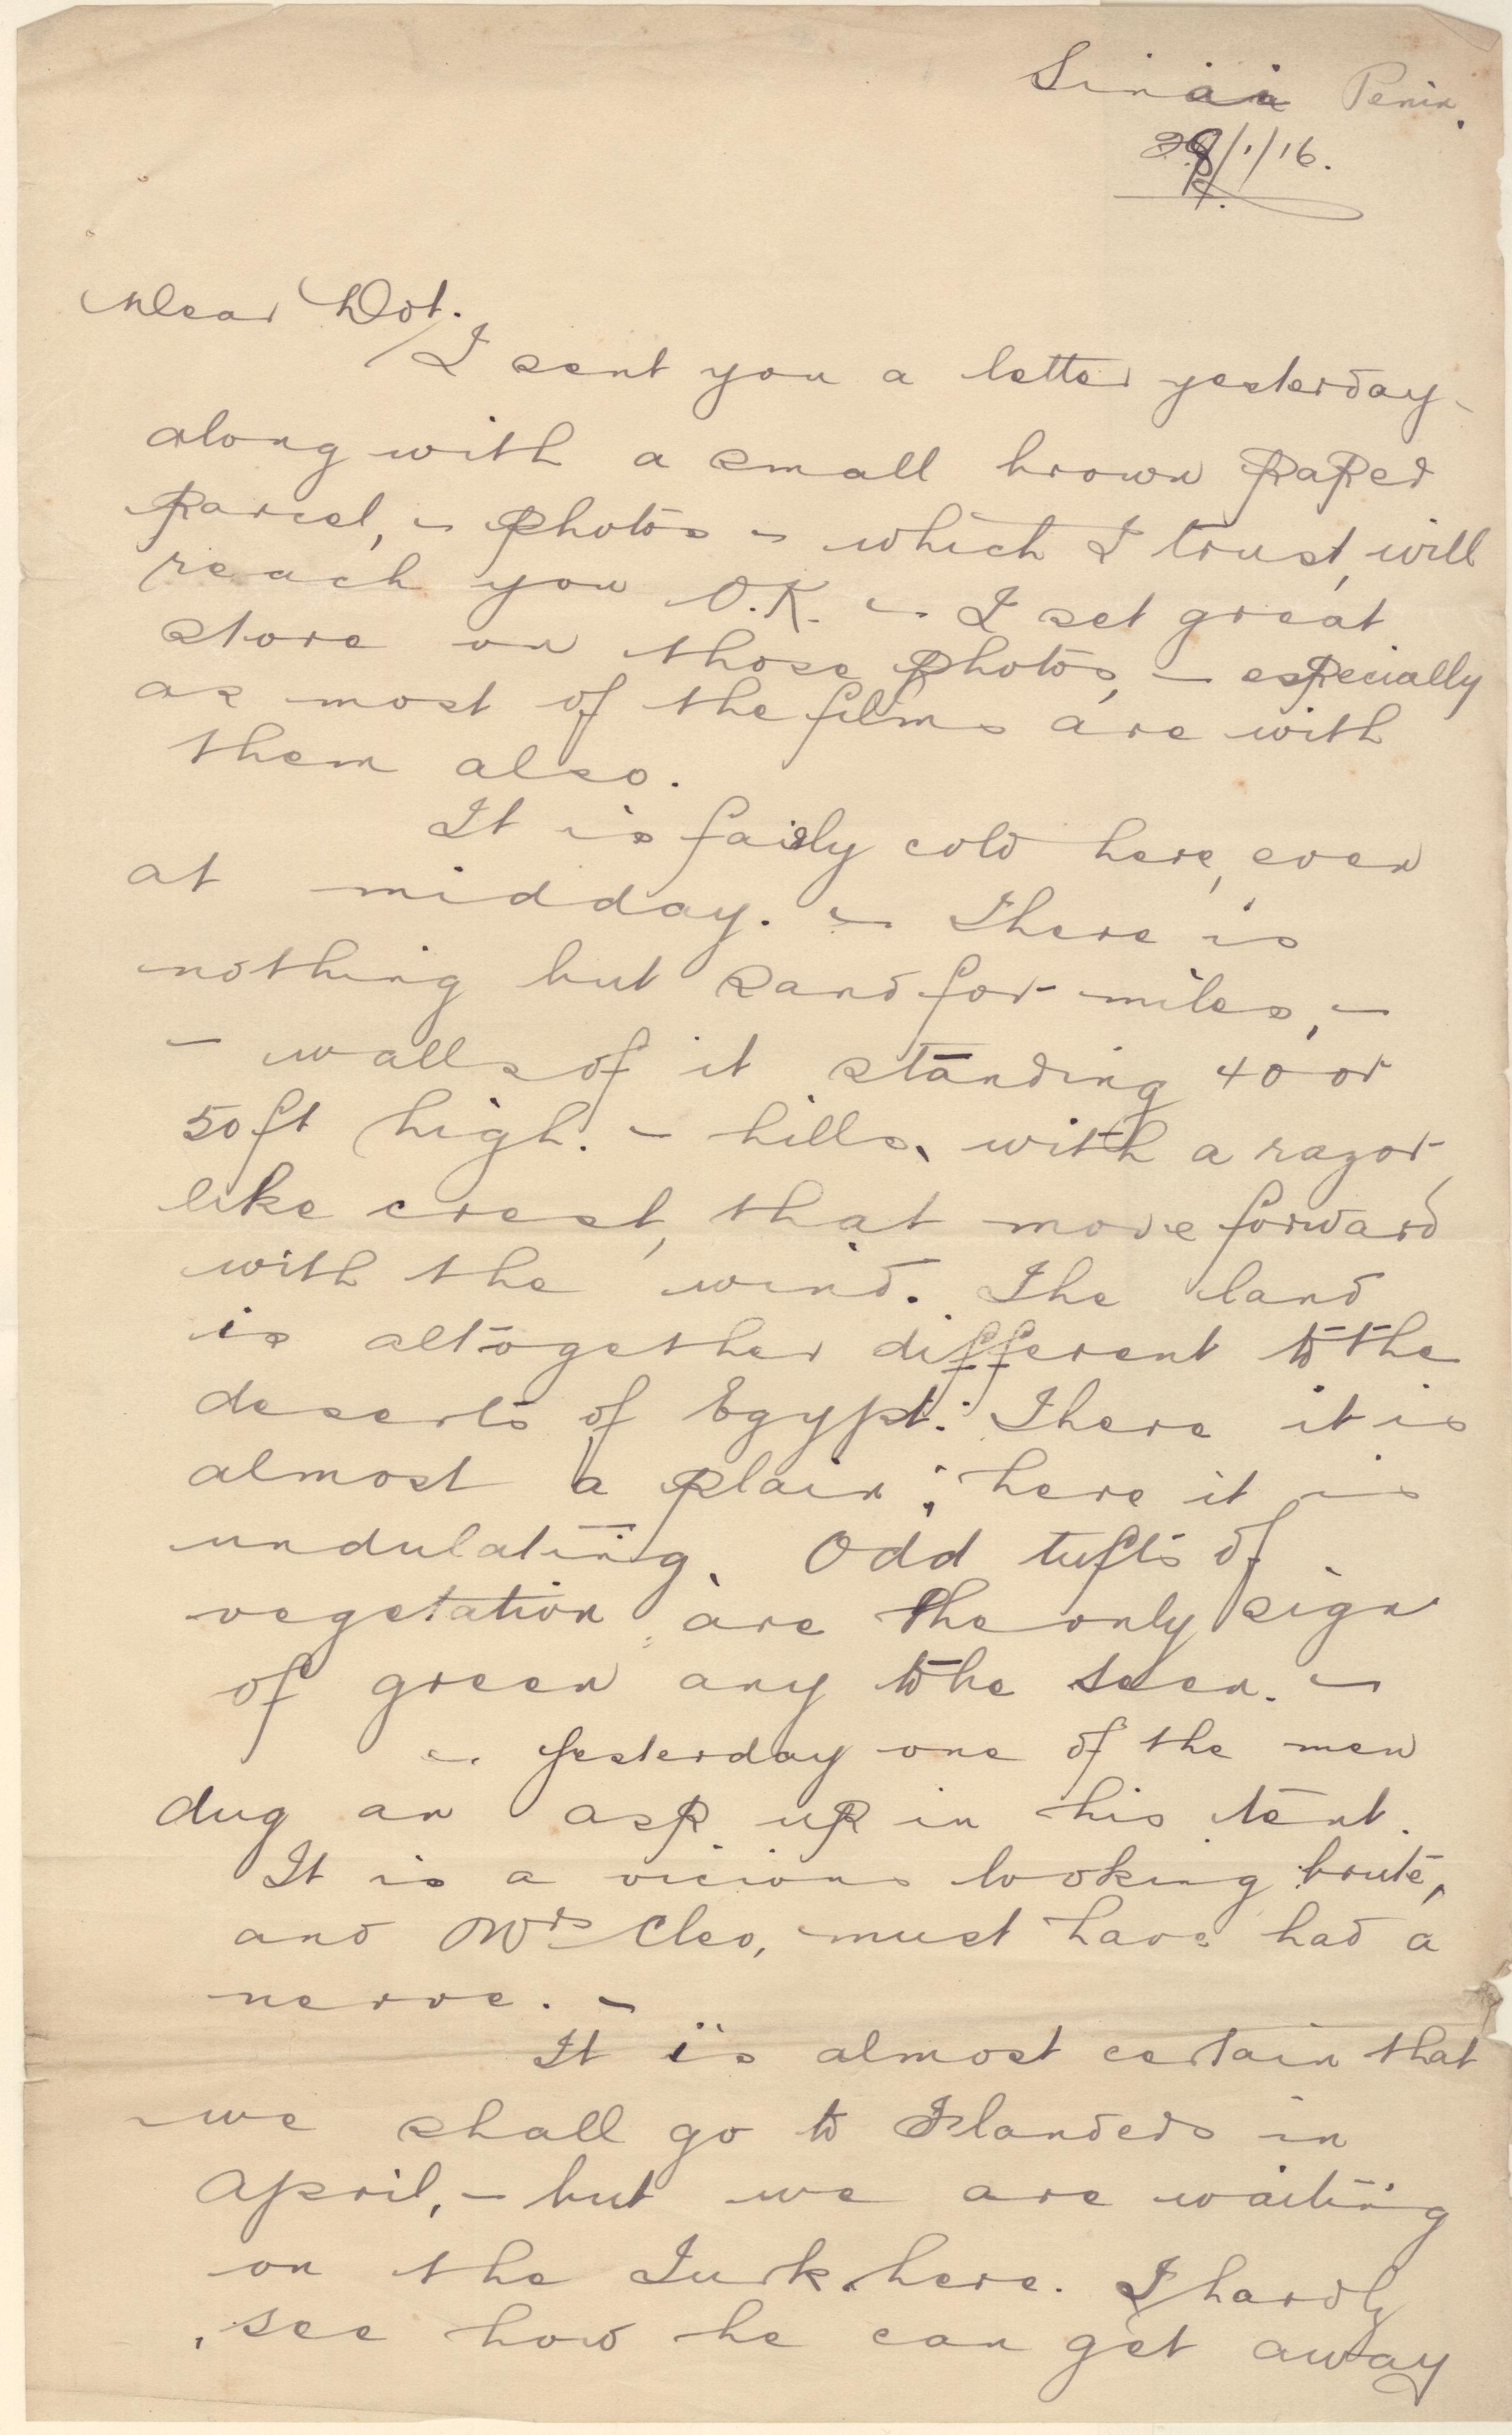 Sinai Penin.
28/1/16.
Dear Dot.
I sent you a letter yesterday -
along with a small brown paper
parcel, - photos - which I trust, will
reach you O.K. - I set great
store on those photos, - especially
as most of the films are with
them also.
It is fairly cold here, even
at midday. - There is
nothing but sand for miles, -
- walls of it standing 40 or
50 ft high. - hills, with a razor
like crest, that move forward
with the wind. The land
is altogether different to the
deserts of Egypt. There it is
almost a plain; here it is
undulating. Odd tufts of
vegetation are the only sign
of green any to be seen. -
- Yesterday one of the men
dug an asp up in his tent.
It is a vicious looking brute,
and Mrs Cleo, must have had a
nerve. -
It is almost certain that
we shall go to Flanders in
April, - but we are waiting
on the Turk here. I hardly
see how he can get away